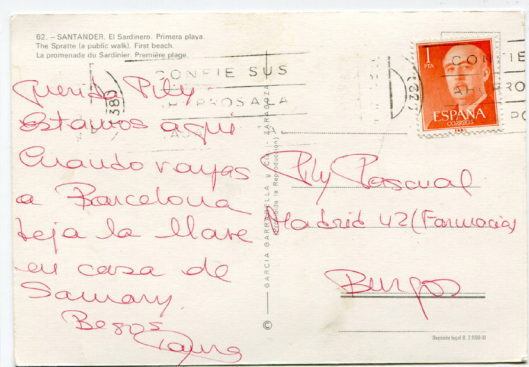 62. – SANTANDER. El Sardinero. Primera playa.
The Spratte (a public walk). First beach.
La promenade du Sardinier. Première plage.
CONFIE SUS
AHORROS A LA
CONFIE
AHORRO
1
PTA
ESPAÑA
CORREOS
Querida Pily
Estamos aquí
Cuando vayas
a Barcelona
deja la llave
en casa de
Samary.
Besos
Pily Pascual
Madrid 42 (Farmacia)
Burgos
© – GARCIA GARRABELLA y
ZARAGOZA
(Prohibida la Reproducción)
Depósito legal B.